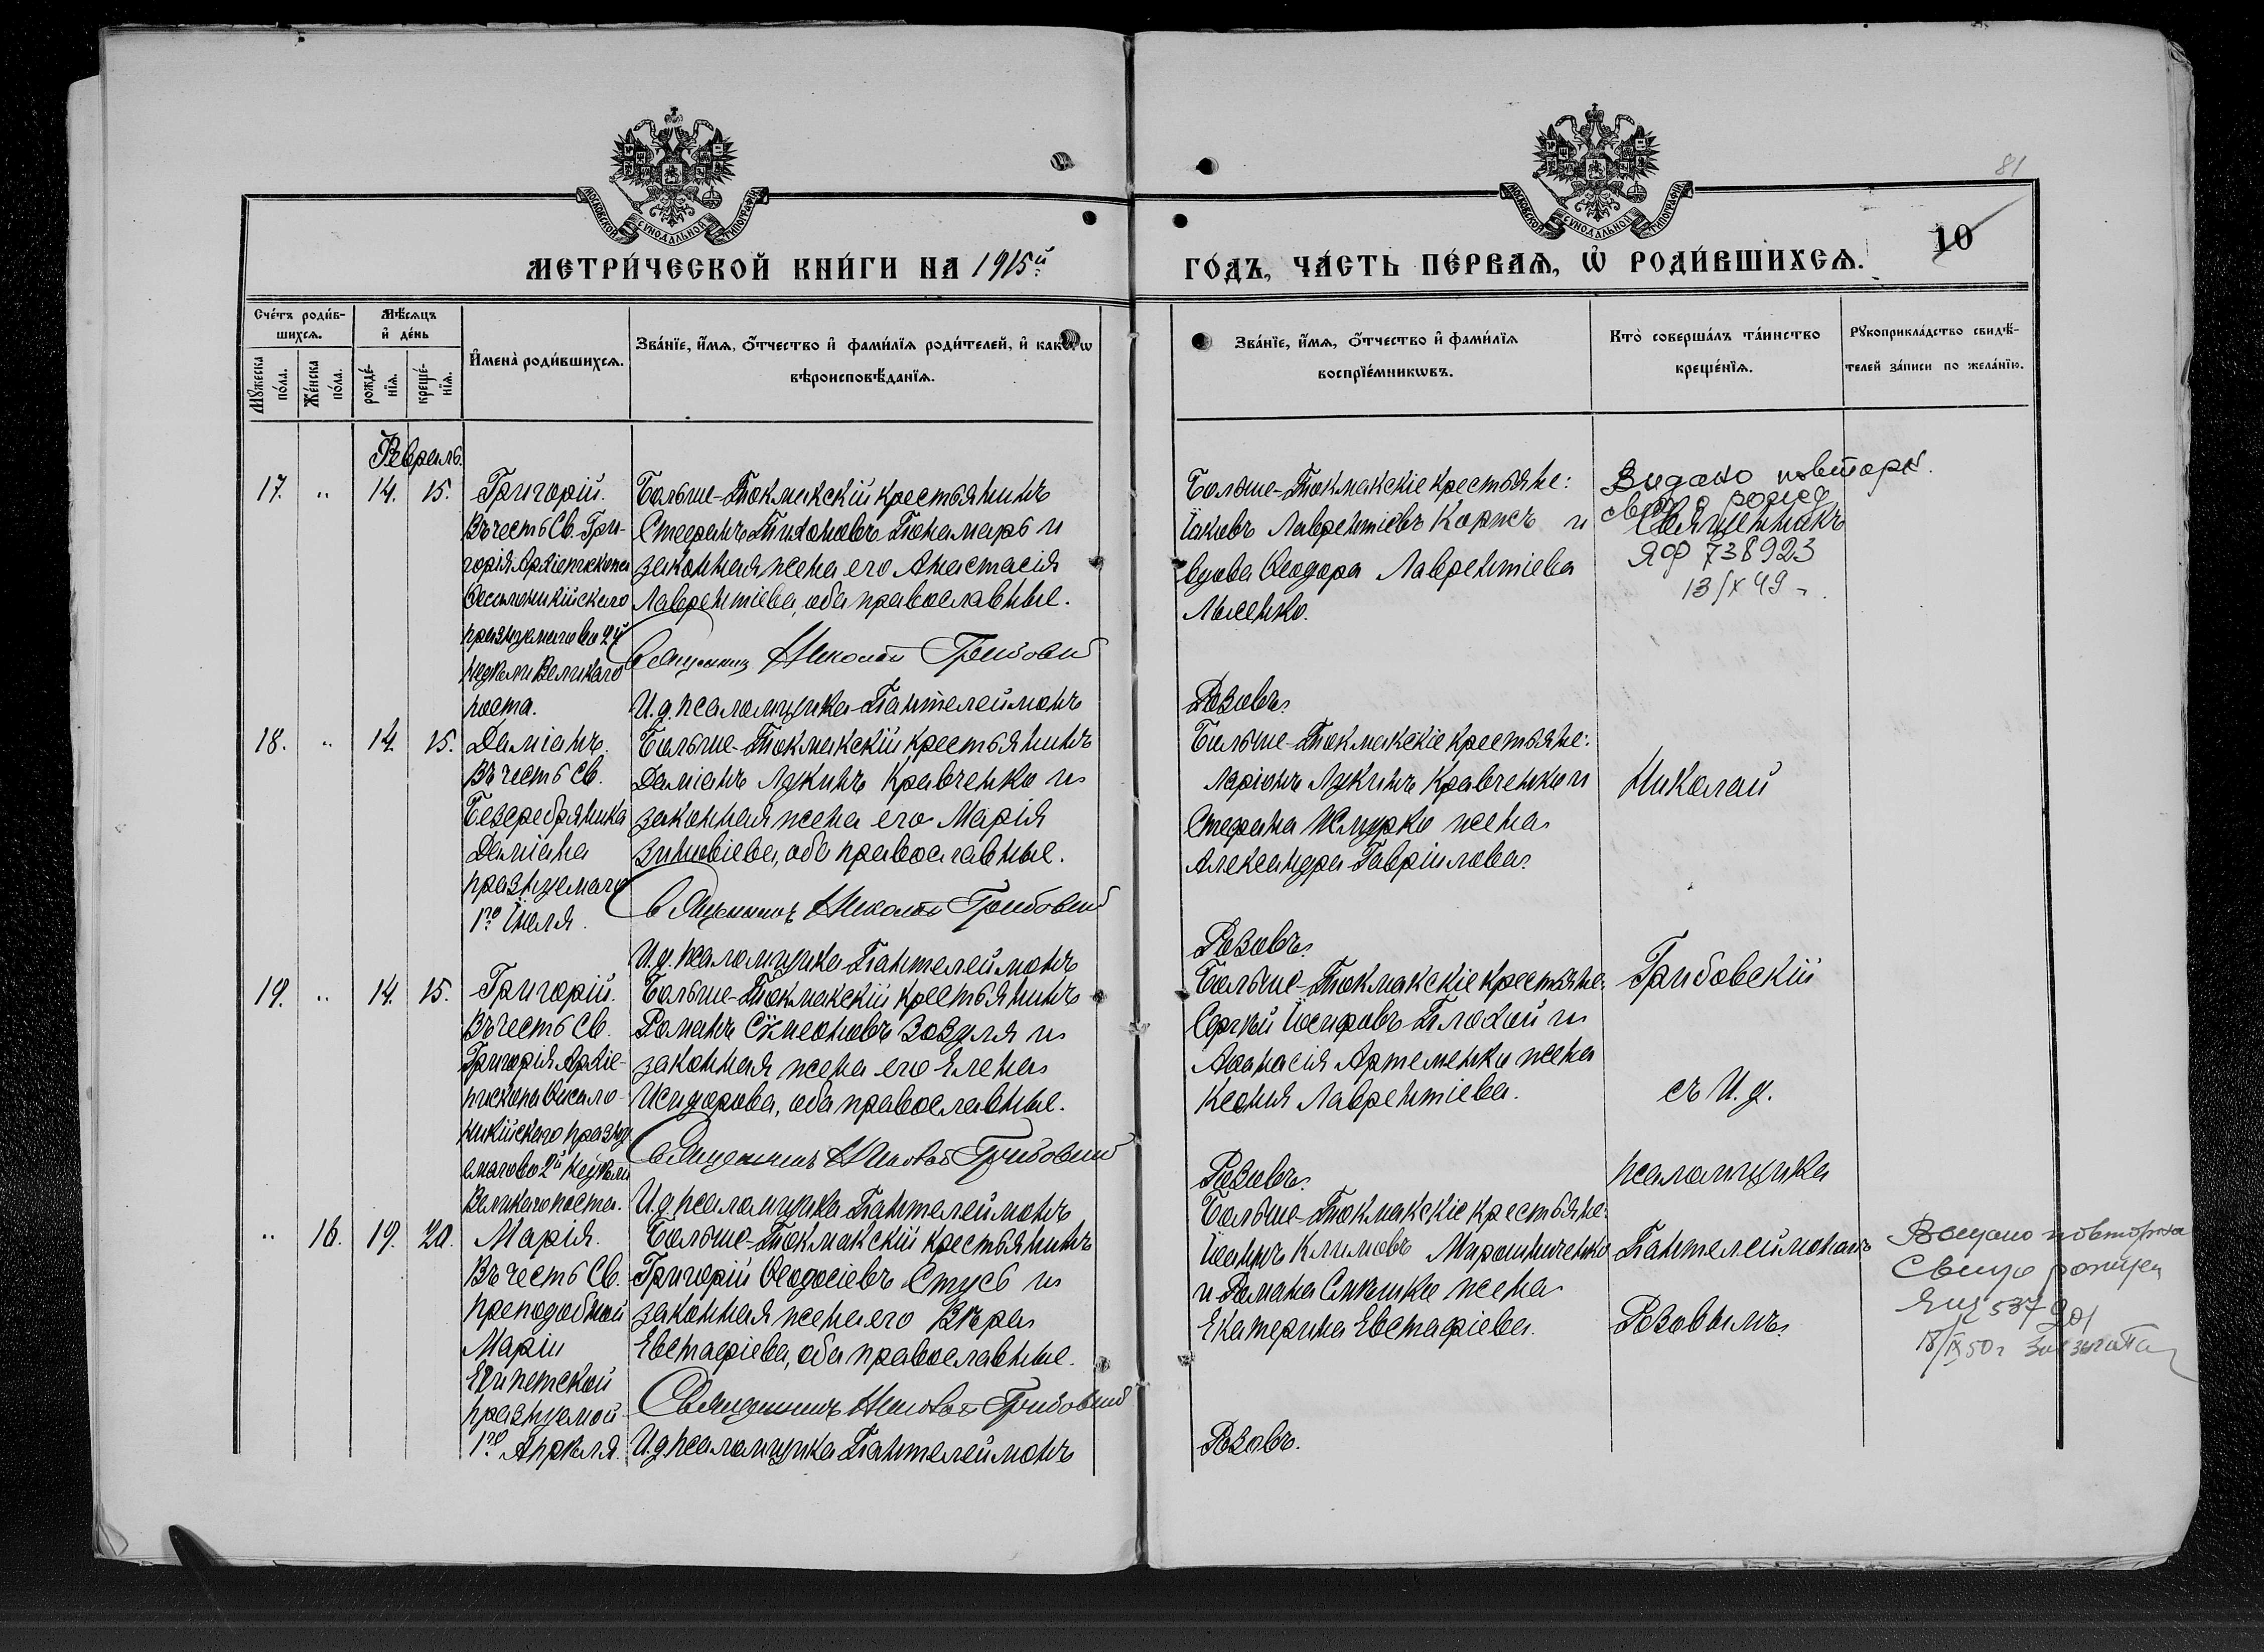 81
МОСКОВСКОЙ СѴНОДАЛЬНОЙ ТИПОГРАФІИ
МОСКОВСКОЙ СѴНОДАЛЬНОЙ ТИПОГРАФІИ
МЕТРИ́ЧЕСКОЙ КНИ́ГИ НА 1915й
ГО́ДЪ, ЧА́СТЬ ПЕ́РВАѦ, Ѡ҆ РОДИ́ВШИХСѦ.
10
Сче́тъ роди́в-
шихсѧ.
Мѣ́сѧцъ
и҆ де́нь
Мꙋ́жеска
по́ла.
Же́нска
по́ла.
рожде́-
нїѧ.
креще́-
нїѧ.
И҆мена̀ роди́вшихсѧ.
Зва́нїе, и҆́мѧ, о҆́тчество и҆ фами́лїѧ роди́телей, и҆ како́гѡ
вѣроисповѣ́данїѧ.
Зва́нїе, и҆́мѧ, о҆́тчество и҆ фами́лїѧ
воспрїе́мникѡвъ.
Кто̀ соверша́лъ та́инство
креще́нїѧ.
Рꙋкоприкла́дство свидѣ́-
телей за́писи по жела́нїю.
Февраль.
17. " 14. 15.
Григорій.
Въ честь Св. Гри-
горія Архіепископа
Ѳессалоникійскаго
празднуемаго во 2й
недѣли Великаго
поста.
Больше-Токмакскій крестьянинъ
Стефанъ Тихоновъ Понамарь и
законная жена его Анастасія
Лаврентіева, оба православные.
Священникъ Николай Грибовскій
И.д. псаломщика Пантелеймонъ
Больше-Токмакскіе крестьяне:
Іаковъ Лаврентіевъ Коржъ и
вдова Ѳеодора Лаврентіева
Лысенко.
Розовъ.
Видано повторн.
свід. о рожд
Священникъ
ЯФ 738923
13/X 49
18. " 14. 15.
Даміанъ.
Въ честь Св.
Безсребряника
Даміана
празднуемаго
1го Іюля.
Больше-Токмакскій крестьянинъ
Даміанъ Лукинъ Кравченко и
законная жена его Марія
Зиновіева, оба православные.
Священникъ Николай Грибовскій
И.д. псаломщика Пантелеймонъ
Больше-Токмакскіе крестьяне:
Ларіонъ Лукинъ Кравченко и
Стефана Жмурко жена
Александра Гавріилова.
Розовъ.
Николай
19. " 14. 15.
Григорій.
Въ честь Св.
Григорія Архіе-
пископа Ѳессало-
никійскаго праздну-
емаго во 2й недѣли
Великаго поста.
Больше-Токмакскій крестьянинъ
Романъ Сѵмеоновъ Зозуля и
законная жена его Елена
Исидорова, оба православные.
Священникъ Николай Грибовскій
И.д. псаломщика Пантелеймонъ
Больше-Токмакскіе крестьяне:
Сергѣй Іосифовъ Плохой и
Аѳанасія Артеменко жена
Ксенія Лаврентіева.
Розовъ.
Грибовскій
съ И.д.
псаломщика
" 16. 19. 20.
Марія.
Въ честь Св.
преподобной
Маріи
Египетской
празднуемой
1го Апрѣля.
Больше-Токмакскій крестьянинъ
Григорій Ѳеодосіевъ Стусь и
законная жена его Вѣра
Евстафіева, оба православные.
Священникъ Николай Грибовскій
И.д. псаломщика Пантелеймонъ
Больше-Токмакскіе крестьяне:
Іоаннъ Климовъ Мирошниченко
и Романа жена
Екатерина Евстафіева.
Розовъ.
Пантелеймономъ
Розовымъ.
повторно
537901
18/IX 50 г